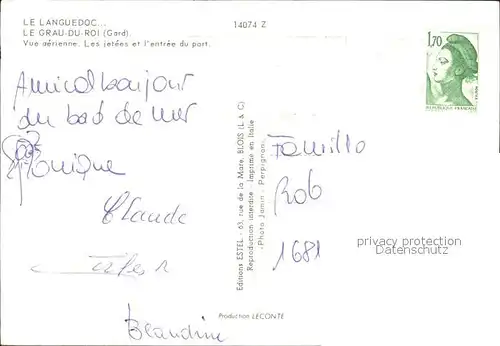 LE LANGUEDOC...
LE GRAU-DU-ROI (Gard).
Vue aérienne. Les jetées et l'entrée du port.
14074 Z
Amical bonjour
du bord de mer
Monique
Claude
Blandine
Editions ESTEL - 63, rue de la Maire, BLOIS (L. & C)
Reproduction interdite - Imprimé en Italie
-Photo Jomin - Perpignan-
Production LECONTE
1,70
REPUBLIQUE FRANÇAISE
Famille
Rob
1681
privacy protection
Datenschutz